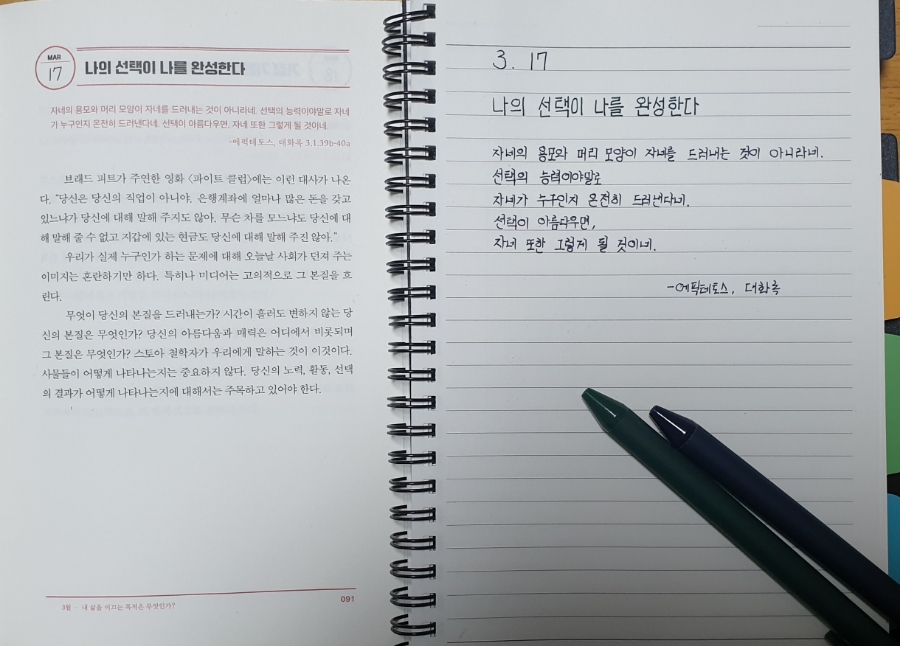 MAR
17
나의 선택이 나를 완성한다
자네의 용모와 머리 모양이 자네를 드러내는 것이 아니라네. 선택의 능력이야말로 자네
가 누구인지 온전히 드러낸다네. 선택이 아름다우면, 자네 또한 그렇게 될 것이네.
-에픽테토스, 대화록 3.1.39b-40a
브래드 피트가 주연한 영화 〈파이트 클럽〉에는 이런 대사가 나온
다. "당신은 당신의 직업이 아니야. 은행계좌에 얼마나 많은 돈을 갖고
있느냐가 당신에 대해 말해 주지도 않아. 무슨 차를 모느냐도 당신에 대
해 말해 줄 수 없고 지갑에 있는 현금도 당신에 대해 말해 주진 않아."
우리가 실제 누구인가 하는 문제에 대해 오늘날 사회가 던져 주는
이미지는 혼란하기만 하다. 특히나 미디어는 고의적으로 그 본질을 흐
린다.
무엇이 당신의 본질을 드러내는가? 시간이 흘러도 변하지 않는 당
신의 본질은 무엇인가? 당신의 아름다움과 매력은 어디에서 비롯되며
그 본질은 무엇인가? 스토아 철학자가 우리에게 말하는 것이 이것이다.
사물들이 어떻게 나타나는지는 중요하지 않다. 당신의 노력, 활동, 선택
의 결과가 어떻게 나타나는지에 대해서는 주목하고 있어야 한다.
3월 - 내 삶을 이끄는 목적은 무엇인가?
091
3. 17
나의 선택이 나를 완성한다
자네의 용모와 머리 모양이 자네를 드러내는 것이 아니라네.
선택의 능력이야말로
자네가 누구인지 온전히 드러낸다네.
선택이 아름다우면,
자네 또한 그렇게 될 것이네.
-에픽테토스, 대화록